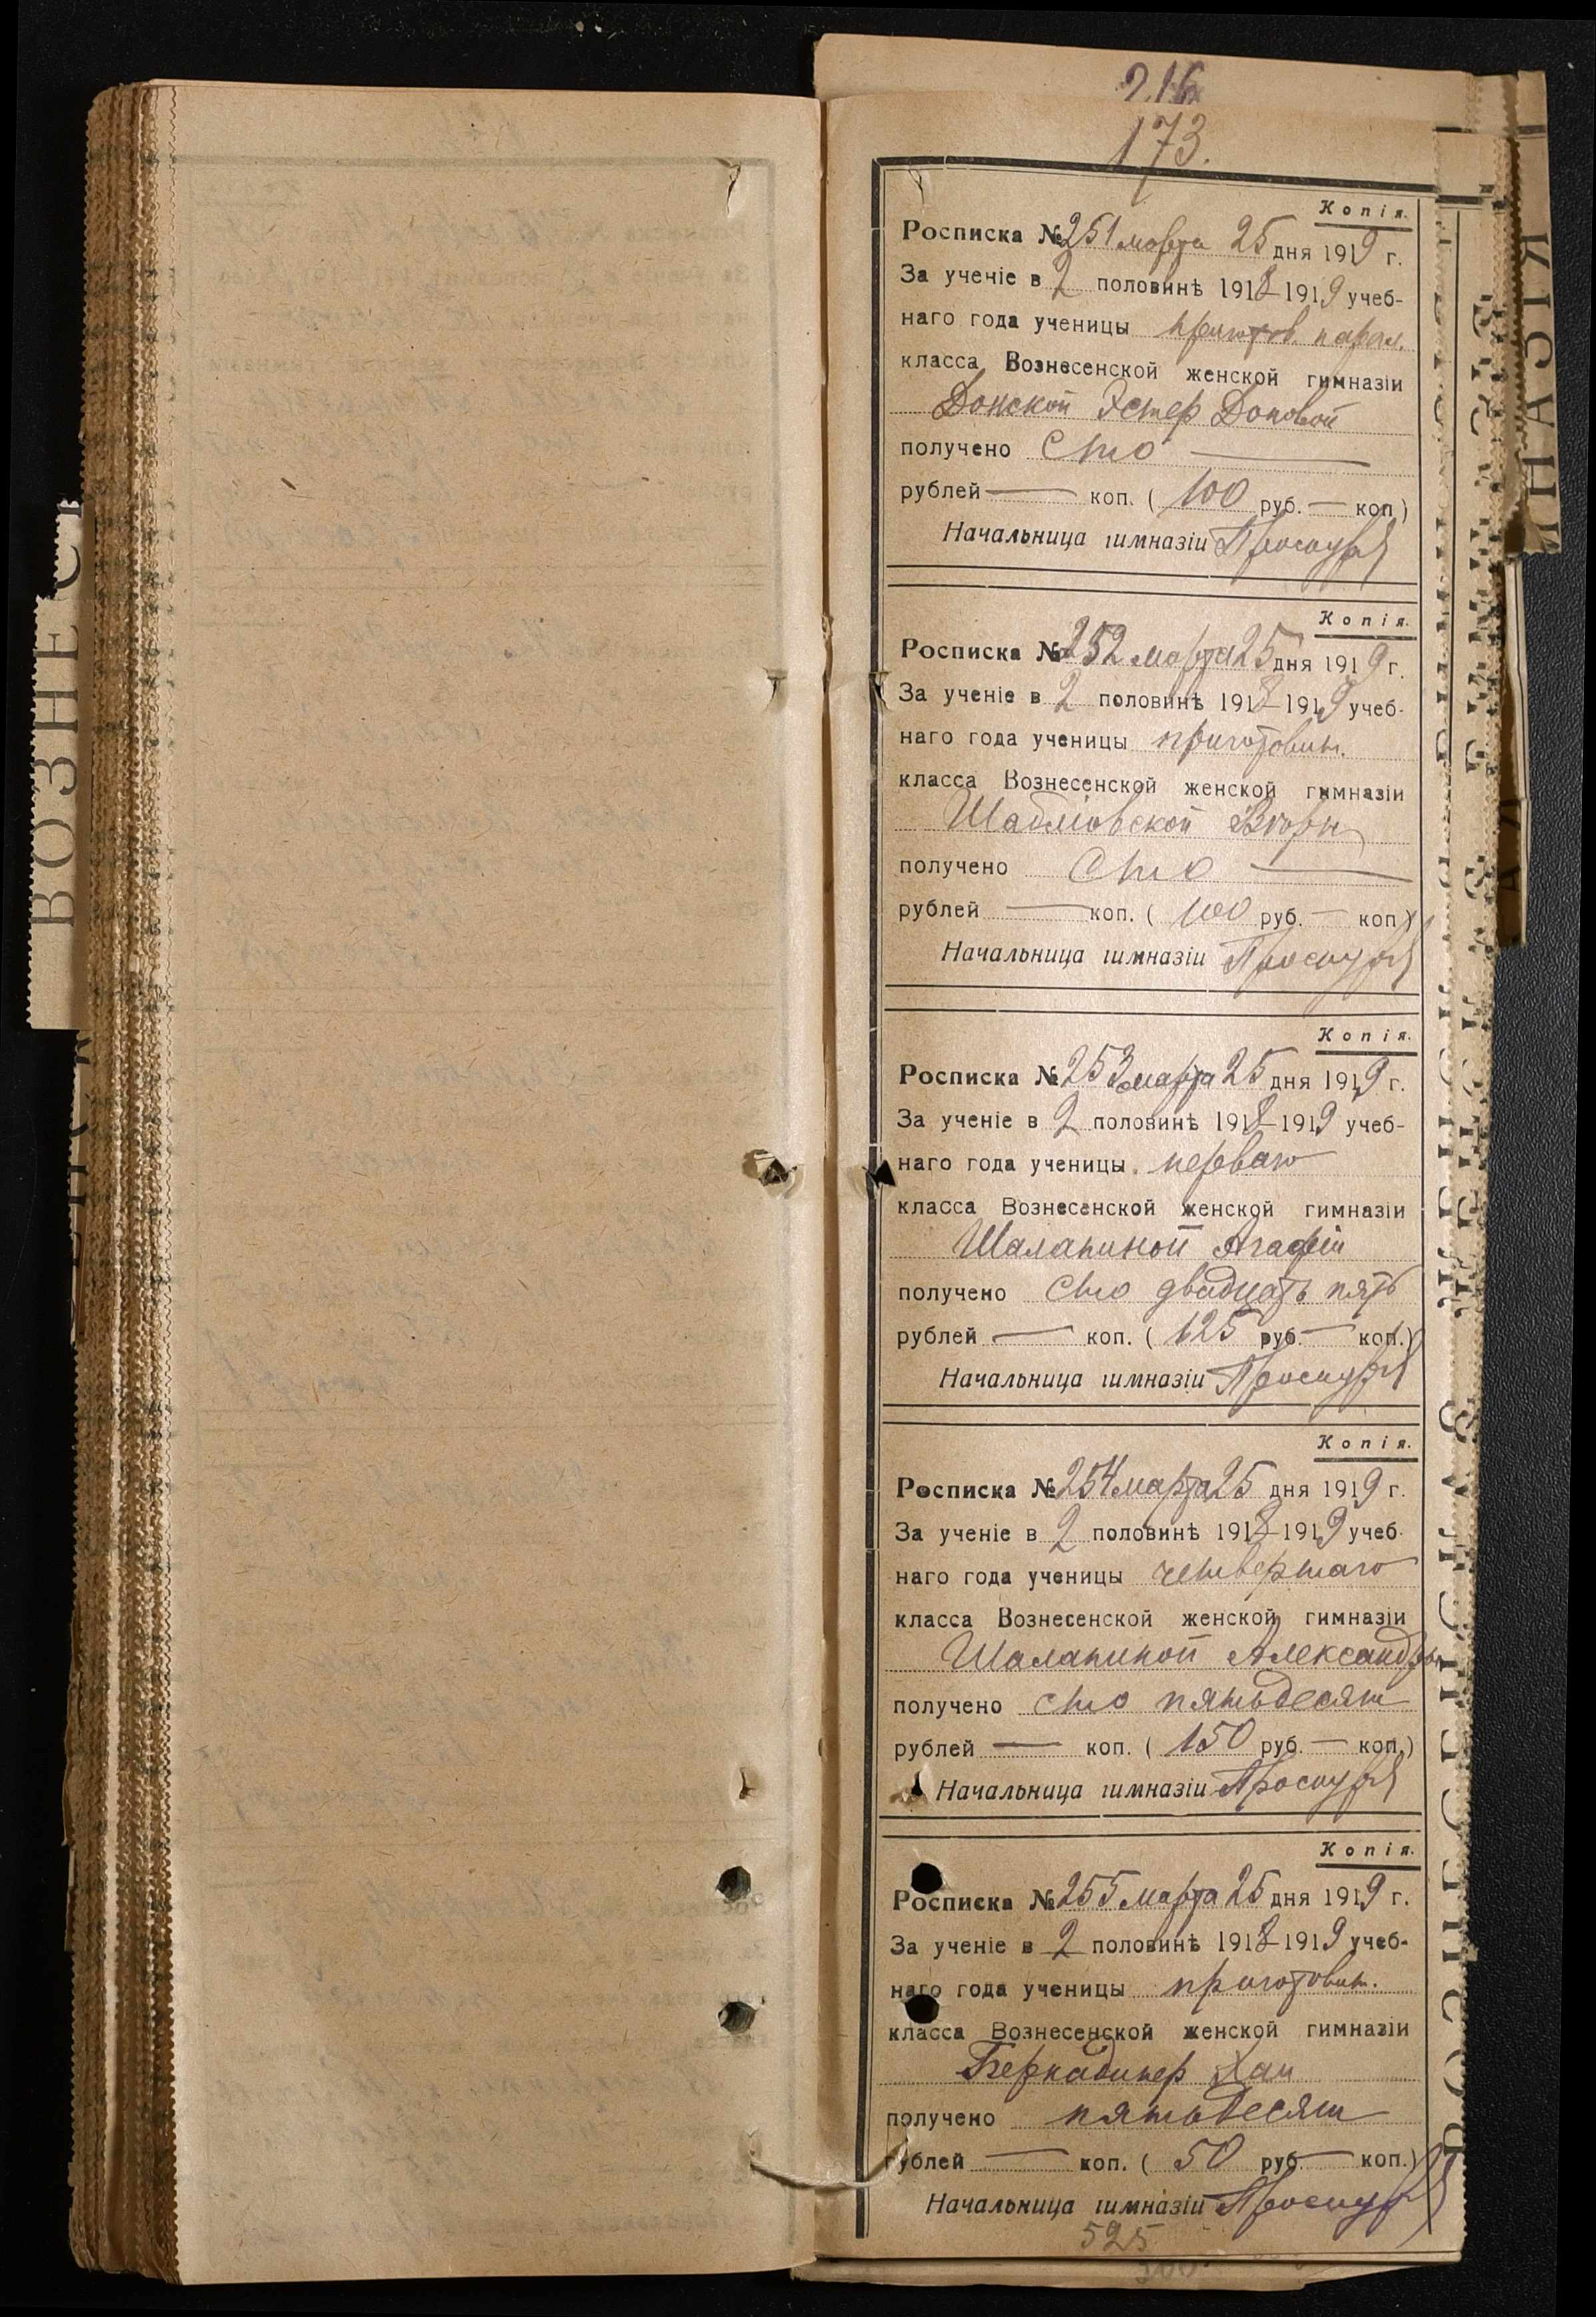 216
173.
Копія.
Росписка № 251 марта 25 дня 1919 г.
За ученіе в 2 половинѣ 1918-1919 учеб-
наго года ученицы приготов. парал.
класса Вознесенской женской гимназіи
Донской Эстер
получено Сто —
рублей — коп. ( 100 руб. — коп)
Начальница гимназіи
Копія.
Росписка № 252 марта 25 дня 1919 г.
За ученіе в 2 половинѣ 1918-1919 учеб-
наго года ученицы приготовит.
класса Вознесенской женской гимназіи
получено Сто —
рублей — коп. ( 100 руб. — коп)
Начальница гимназіи
Копія.
Росписка № 253 марта 25 дня 1919 г.
За ученіе в 2 половинѣ 1918-1919 учеб-
наго года ученицы перваго
класса Вознесенской женской гимназіи
Шалапиной Агафіи
получено Сто двадцать пять
рублей — коп. ( 125 руб. — коп.)
Начальница гимназіи
Копія.
Росписка № 254 марта 25 дня 1919 г.
За ученіе в 2 половинѣ 1918-1919 учеб-
наго года ученицы четвертаго
класса Вознесенской женской гимназіи
Шалапиной Александры
получено сто пятьдесят
рублей — коп. ( 150 руб. — коп.)
Начальница гимназіи
Копія.
Росписка № 255 марта 25 дня 1919 г.
За ученіе в 2 половинѣ 1918-1919 учеб-
наго года ученицы приготовит.
класса Вознесенской женской гимназіи
Бернадинер Хаи
получено пятьдесят
рублей — коп. ( 50 руб. — коп.)
Начальница гимназіи
525
ВОЗНЕС